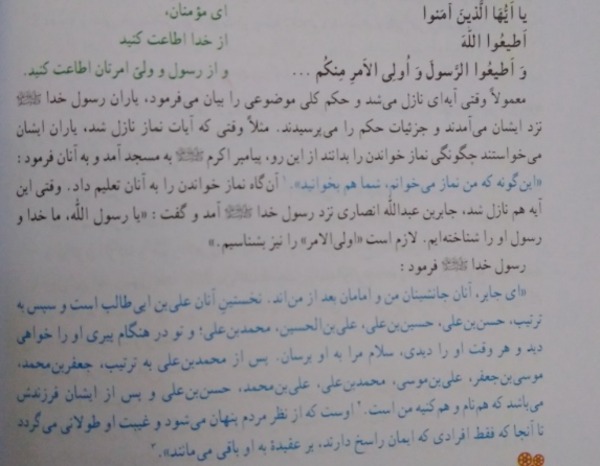 يا اَيُّهَا الَّذينَ آمَنوا
ای مؤمنان،
اَطيعُوا اللّهَ
از خدا اطاعت کنید
وَ اَطيعُوا الرَّسولَ وَ اُولِی الاَمرِ مِنکُم ...
و از رسول و ولیّ امرتان اطاعت کنید.
معمولاً وقتی آیه‌ای نازل می‌شد و حکم کلی موضوعی را بیان می‌فرمود، یاران رسول خدا ﷺ
نزد ایشان می‌آمدند و جزئیات حکم را می‌پرسیدند. مثلاً وقتی که آیات نماز نازل شد، یاران ایشان
می‌خواستند چگونگی نماز خواندن را بدانند از این رو، پیامبر اکرم ﷺ به مسجد آمد و به آنان فرمود :
«این‌گونه که من نماز می‌خوانم، شما هم بخوانید».۱ آن‌گاه نماز خواندن را به آنان تعلیم داد. وقتی این
آیه هم نازل شد، جابربن عبدالله انصاری نزد رسول خدا ﷺ آمد و گفت : «یا رسول الله، ما خدا و
رسول او را شناخته‌ایم. لازم است «اولی‌الامر» را نیز بشناسیم.»
رسول خدا ﷺ فرمود :
«ای جابر، آنان جانشینان من و امامان بعد از من‌اند. نخستینِ آنان علی‌بن ابی‌طالب است و سپس به
ترتیب، حسن‌بن‌علی، حسین‌بن‌علی، علی‌بن‌الحسین، محمدبن‌علی؛ و تو در هنگام پیری او را خواهی
دید و هر وقت او را دیدی، سلام مرا به او برسان. پس از محمدبن‌علی به ترتیب، جعفربن‌محمد،
موسی‌بن‌جعفر، علی‌بن‌موسی، محمدبن‌علی، علی‌بن‌محمد، حسن‌بن‌علی و پس از ایشان فرزندش
می‌باشد که هم‌نام و هم‌کنیه من است.۲ اوست که از نظر مردم پنهان می‌شود و غیبت او طولانی می‌گردد
تا آنجا که فقط افرادی که ایمان راسخ دارند، بر عقیدهٔ به او باقی می‌مانند».۳